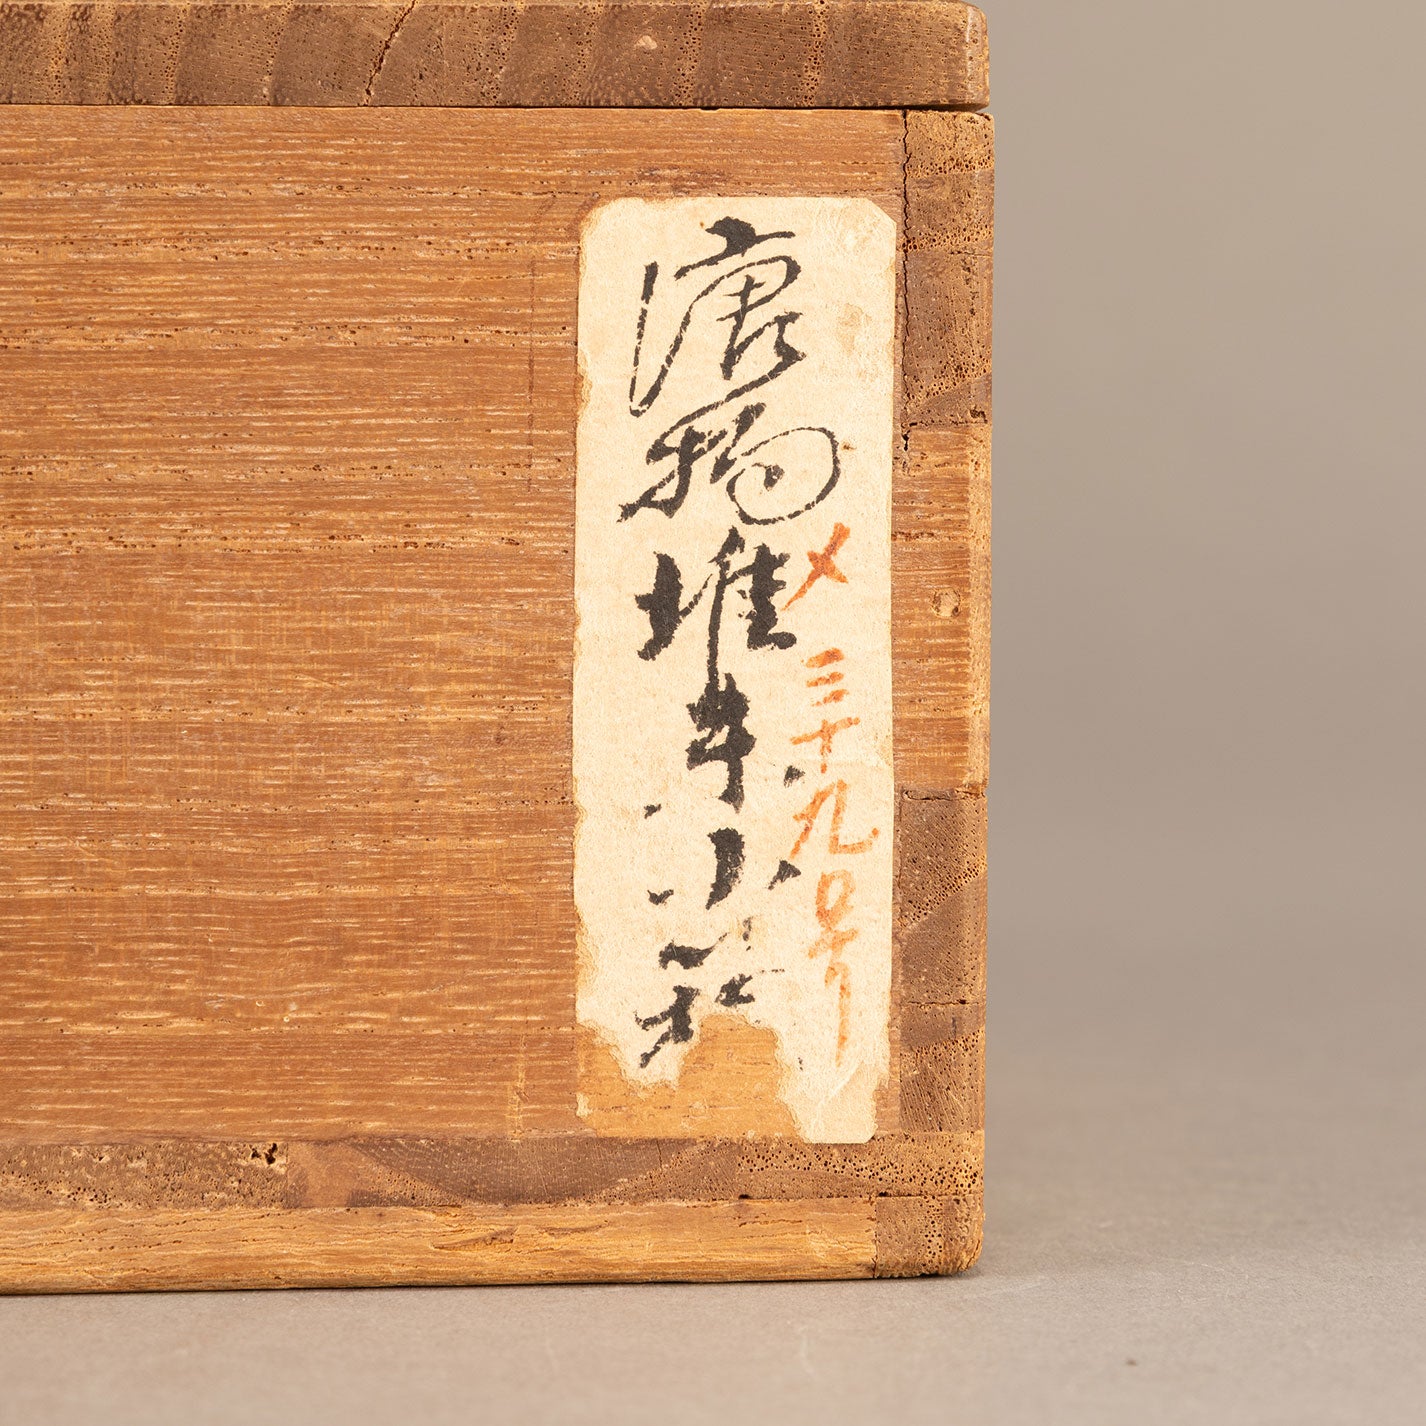 メ三十九号
唐物堆朱小箱